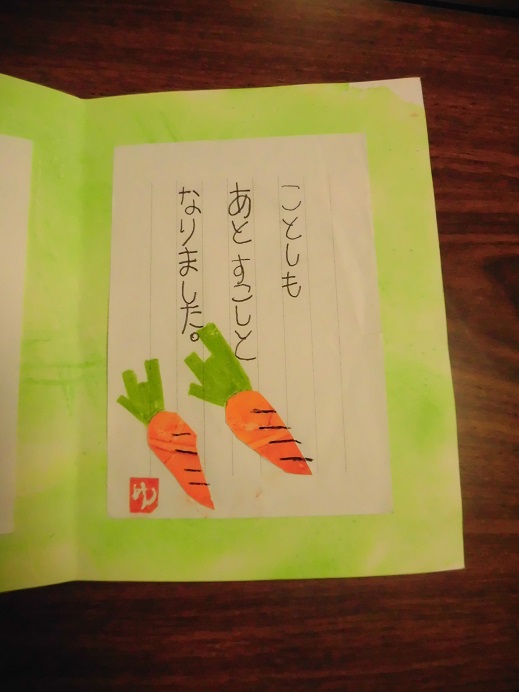 ことしも
あとすこしと
なりました。
ゆ